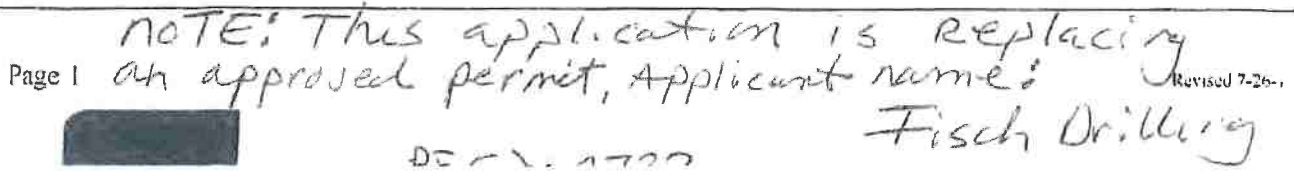 NOTE: This application is Replacing
Page 1 an approved permit, Applicant name: Revised 7-26-
Fisch Drilling